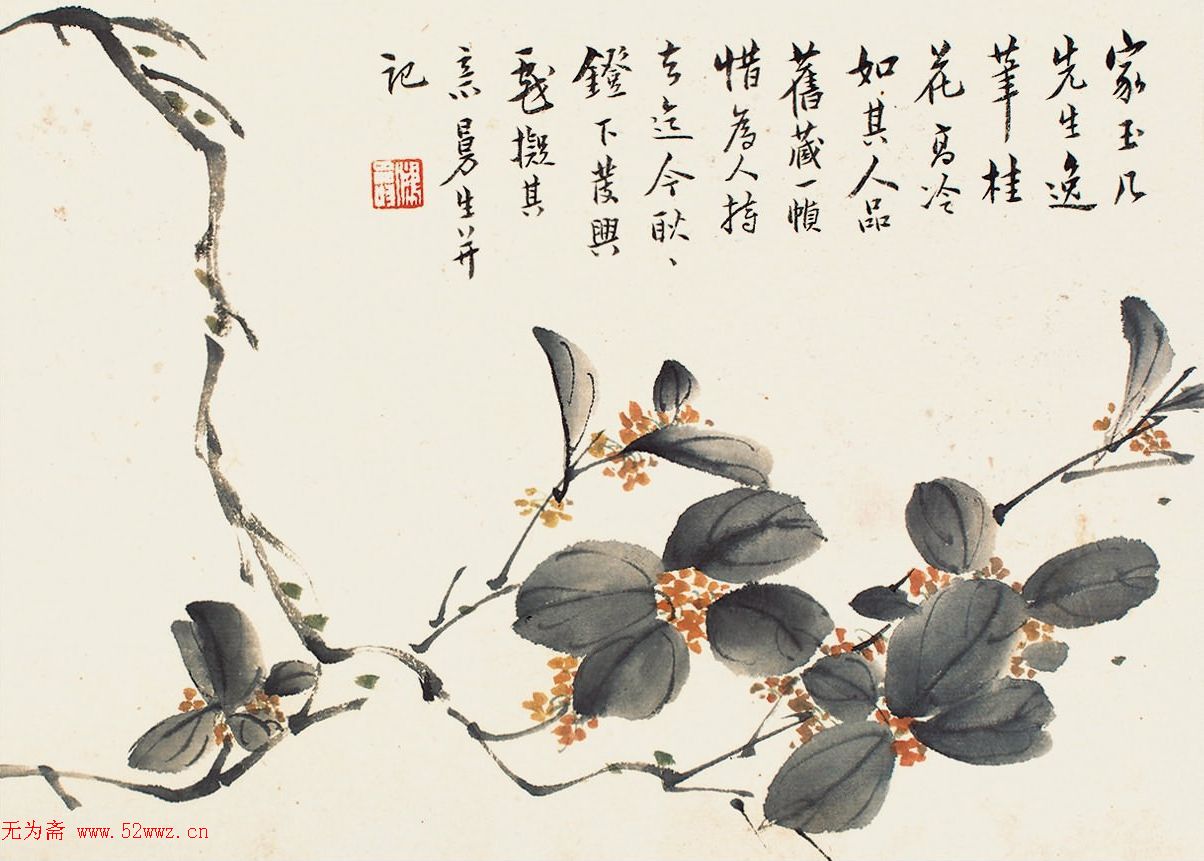 家玉几
先生逸
筆桂
花高冷
如其人品
舊藏一幀
惜為人持
去迄今耿、
鐙下发興
戲擬其
意曼生并
記
无为斋 www.52wwz.cn